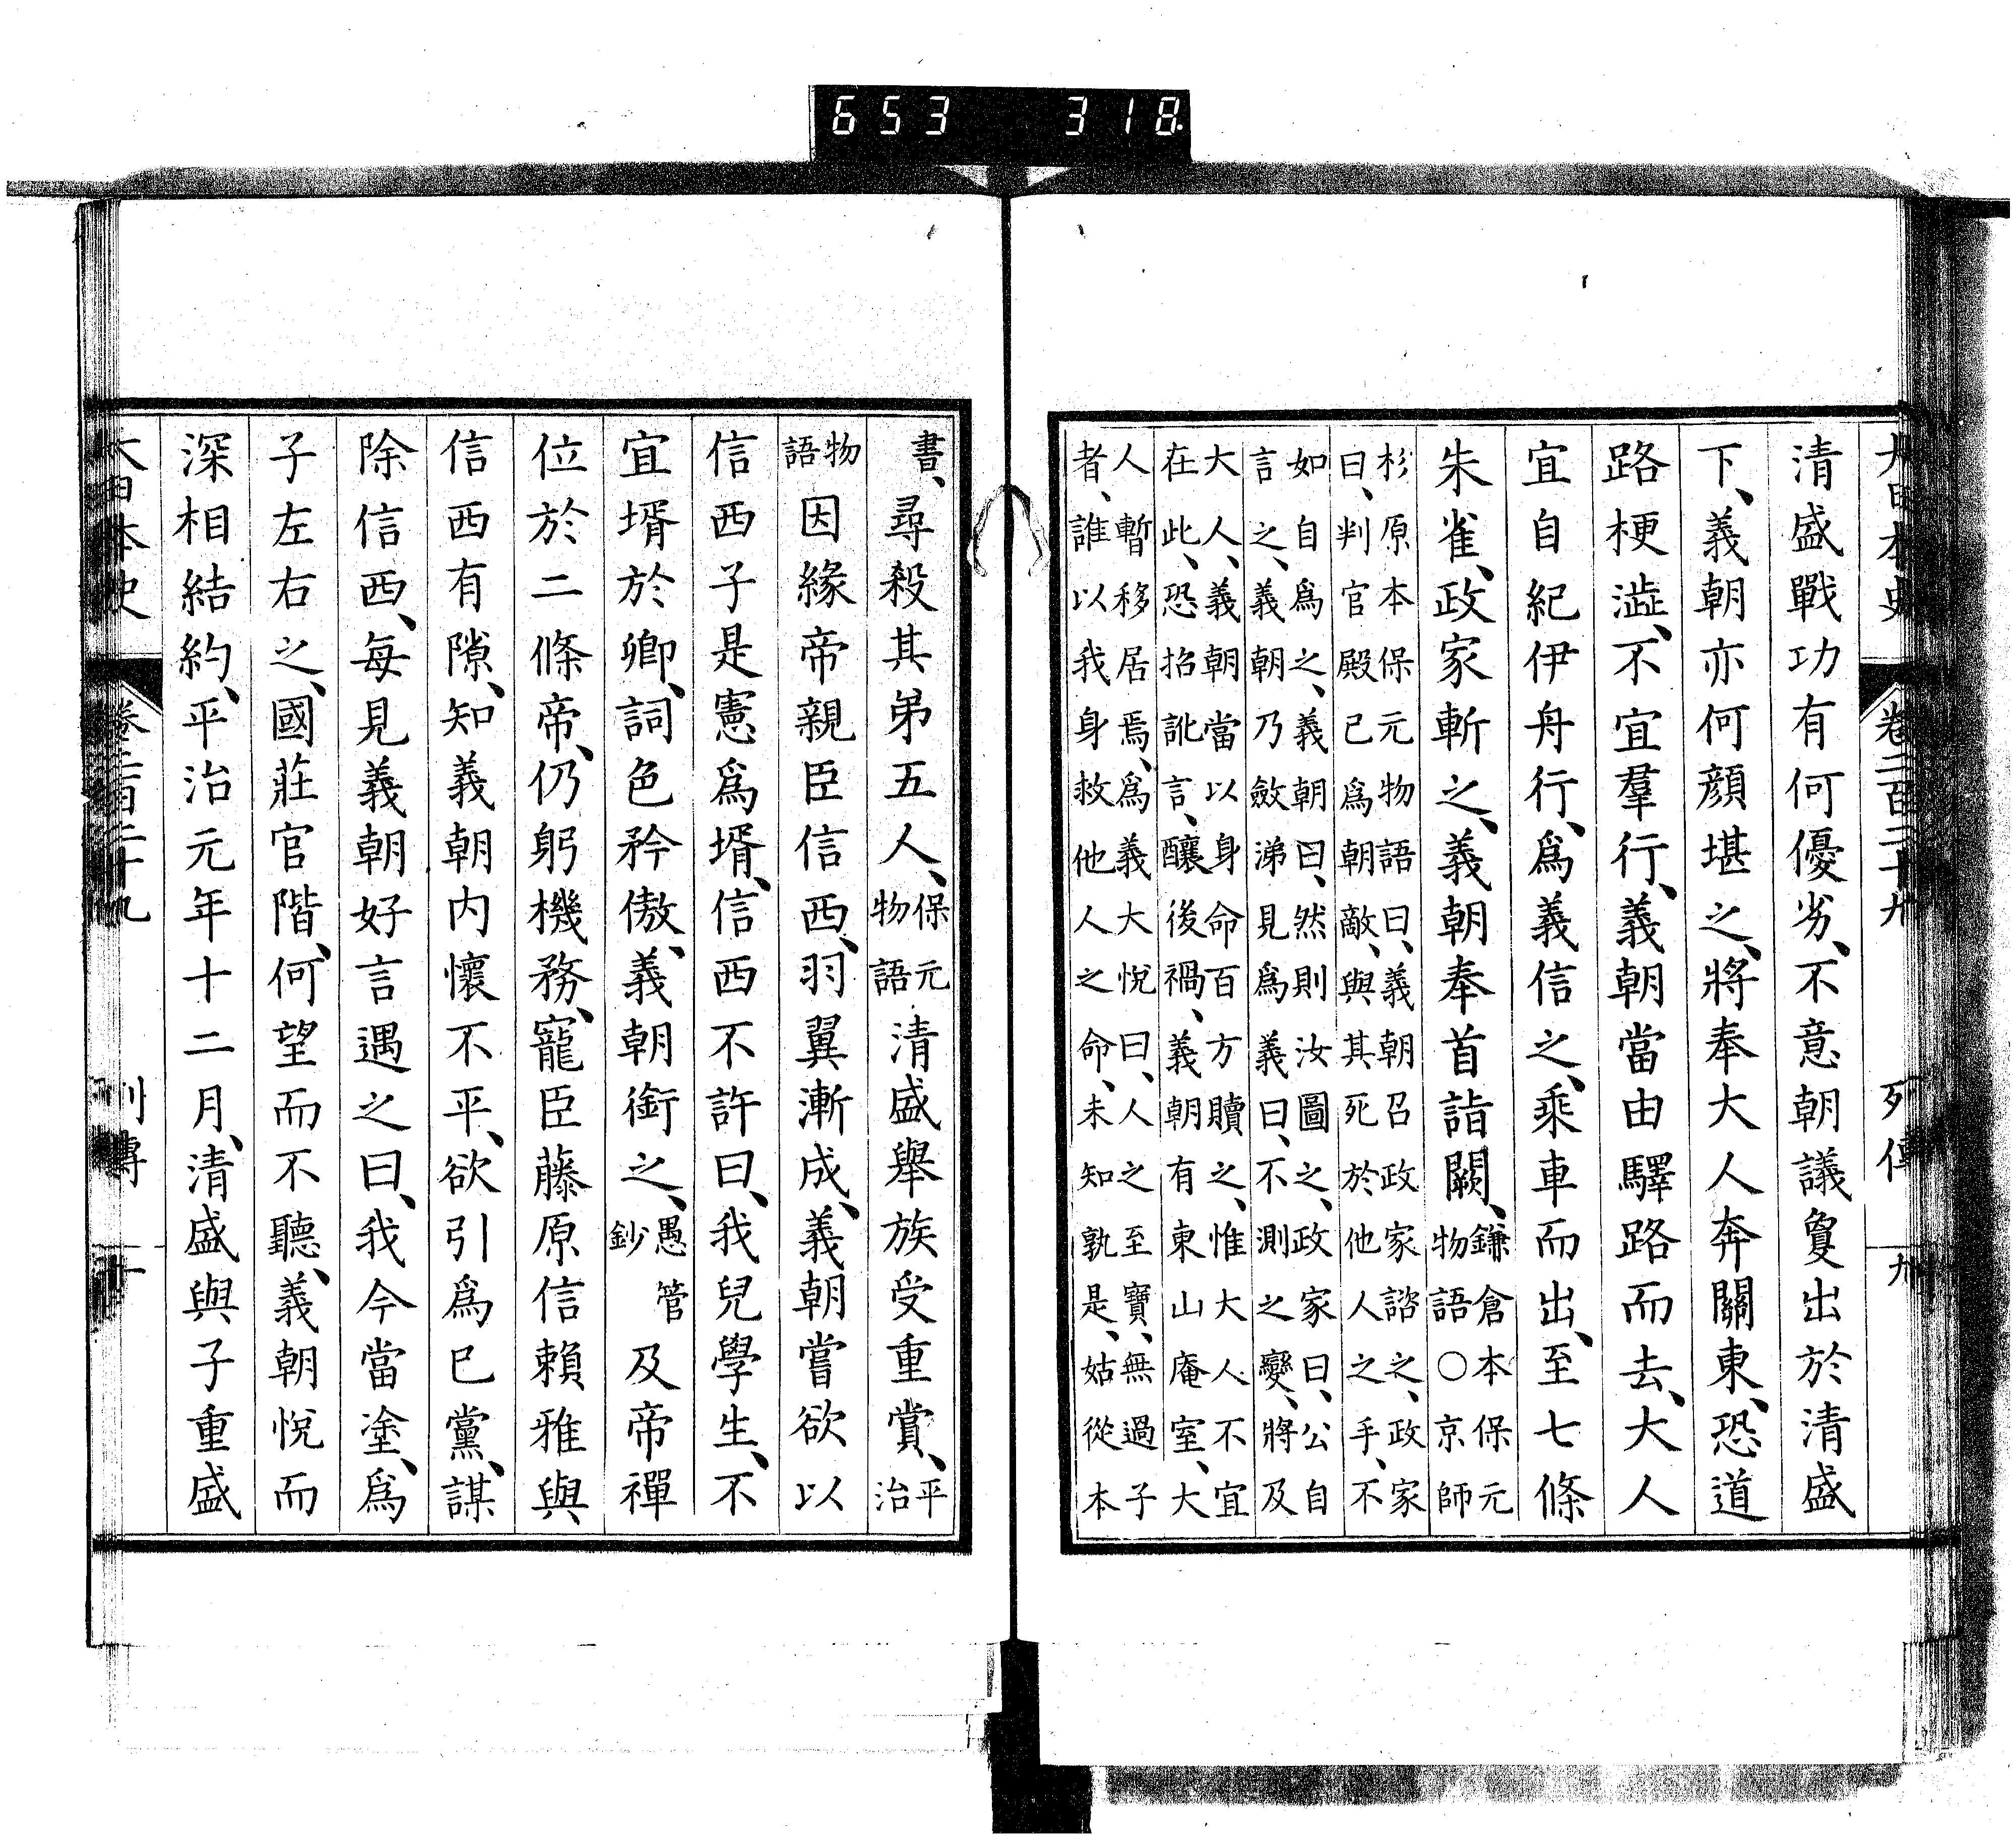 653 318
大日本史 卷二百二十九 列傳 九
清盛戰功有何優劣、不意朝議敻出於清盛
下、義朝亦何顔堪之、將奉大人奔關東、恐道
路梗澁、不宜羣行、義朝當由驛路而去、大人
宜自紀伊舟行、爲義信之、乘車而出、至七條
朱雀、政家斬之、義朝奉首詣闕、鎌倉本保元
物語○京師
杉原本保元物語曰、義朝召政家諮之、政家
曰、判官殿已爲朝敵、與其死於他人之手、不
如自爲之、義朝曰、然則汝圖之、政家曰、公自
言之、義朝乃斂涕見爲義曰、不測之變、將及
大人、義朝當以身命百方贖之、惟大人不宜
在此、恐招訛言、釀後禍、義朝有東山庵室、大
人暫移居焉、爲義大悦曰、人之至寶、無過子
者、誰以我身救他人之命、未知孰是、姑從本
書、尋殺其弟五人、保元物語清盛舉族受重賞、平治
物語因緣帝親臣信西、羽翼漸成、義朝嘗欲以
信西子是憲爲壻、信西不許曰、我兒學生、不
宜壻於卿、詞色矜傲、義朝銜之、愚管鈔及帝禪
位於二條帝、仍躬機務、寵臣藤原信賴雅與
信西有隙、知義朝内懷不平、欲引爲已黨、謀
除信西、每見義朝好言遇之曰、我今當塗、爲
子左右之、國莊官階、何望而不聽、義朝悦而
深相結約、平治元年十二月、清盛與子重盛
大日本史 卷二百二十九 列傳 十